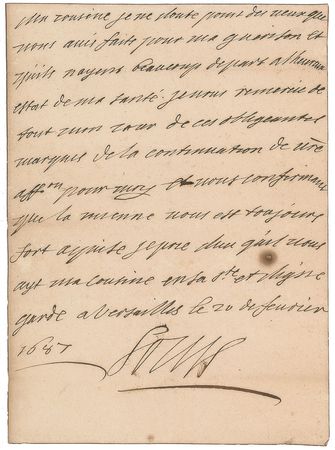 Ma cousine je ne doute point des vœux que
vous avés faits pour ma guerison et
qu'ils n'ayent beaucoup de part a l'heureux
estat de ma santé. je vous remercie de
tout mon cœur de ces obligeantes
marques de la continuation de vre
affon pour moy et vous confirmant
que la mienne vous est toujours
fort aquise je prie dieu qu'il vous
ayt ma cousine en sa ste et digne
garde a Versailles le 20 de feurier
1687
Louis